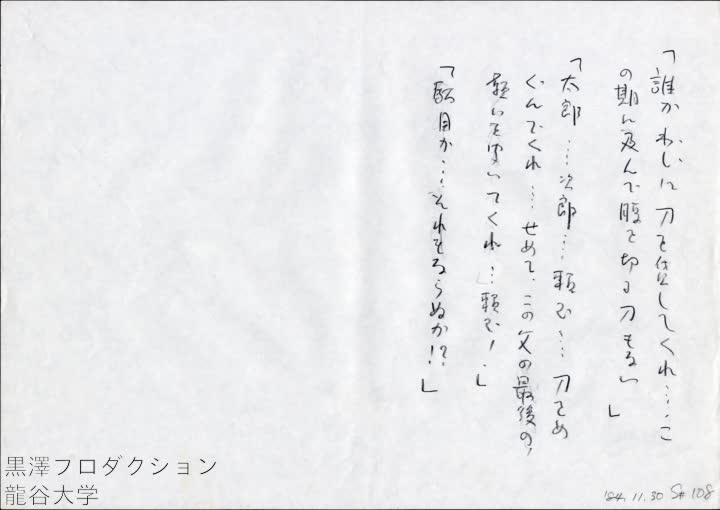 「誰かわしに刀を貸してくれ……こ
の期に及んで腹を切る刀もない」
「太郎……次郎……頼む……刀をめ
ぐんでくれ……せめて、この父の最後の、
願いを聞いてくれ…頼む！」
「駄目か……それもならぬか!?」
'84.11.30 S# 108
黒澤プロダクション
龍谷大学